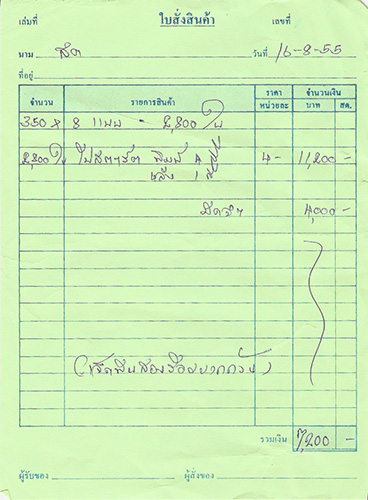 ใบสั่งสินค้า
เล่มที่ เลขที่
นาม สด วันที่ 16-8-55
ที่อยู่
จำนวน รายการสินค้า ราคา หน่วยละ จำนวนเงิน บาท สต.
350 x 8 แบบ - 2,800 ใบ
2,800 ใบ พิมพ์ 4 สี 4- 11,200 -
หลัง 1 สี
มัดจำ 4,000 -
(เจ็ดพันสองร้อยบาทถ้วน)
รวมเงิน 7,200 -
ผู้รับของ ผู้สั่งของ